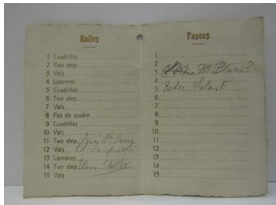 Bailes
1 Cuadrillas
2 Two step
3 Vals
4 Lanceros
5 Cuadrillas
6 Two step
7 Vals
8 Pas de quatre
9 Cuadrillas
10 Vals
11 Two step
12 Vals
13 Lanceros
14 Two step
15 Vals
Paseos
1
2
3
4
5
6
7
8
9
10
11
12
13
14
15